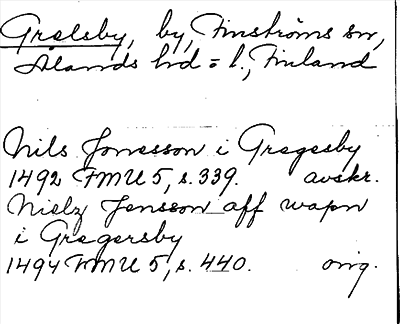 Grälsby, by, Finströms sn,
Ålands hd = l., Finland
Nils Jonsson i Gregesby
1492 FMU 5, s. 339. avskr.
Nielz Jensson aff wapn
i Gregersby
1494 FMU 5, s. 440. orig.